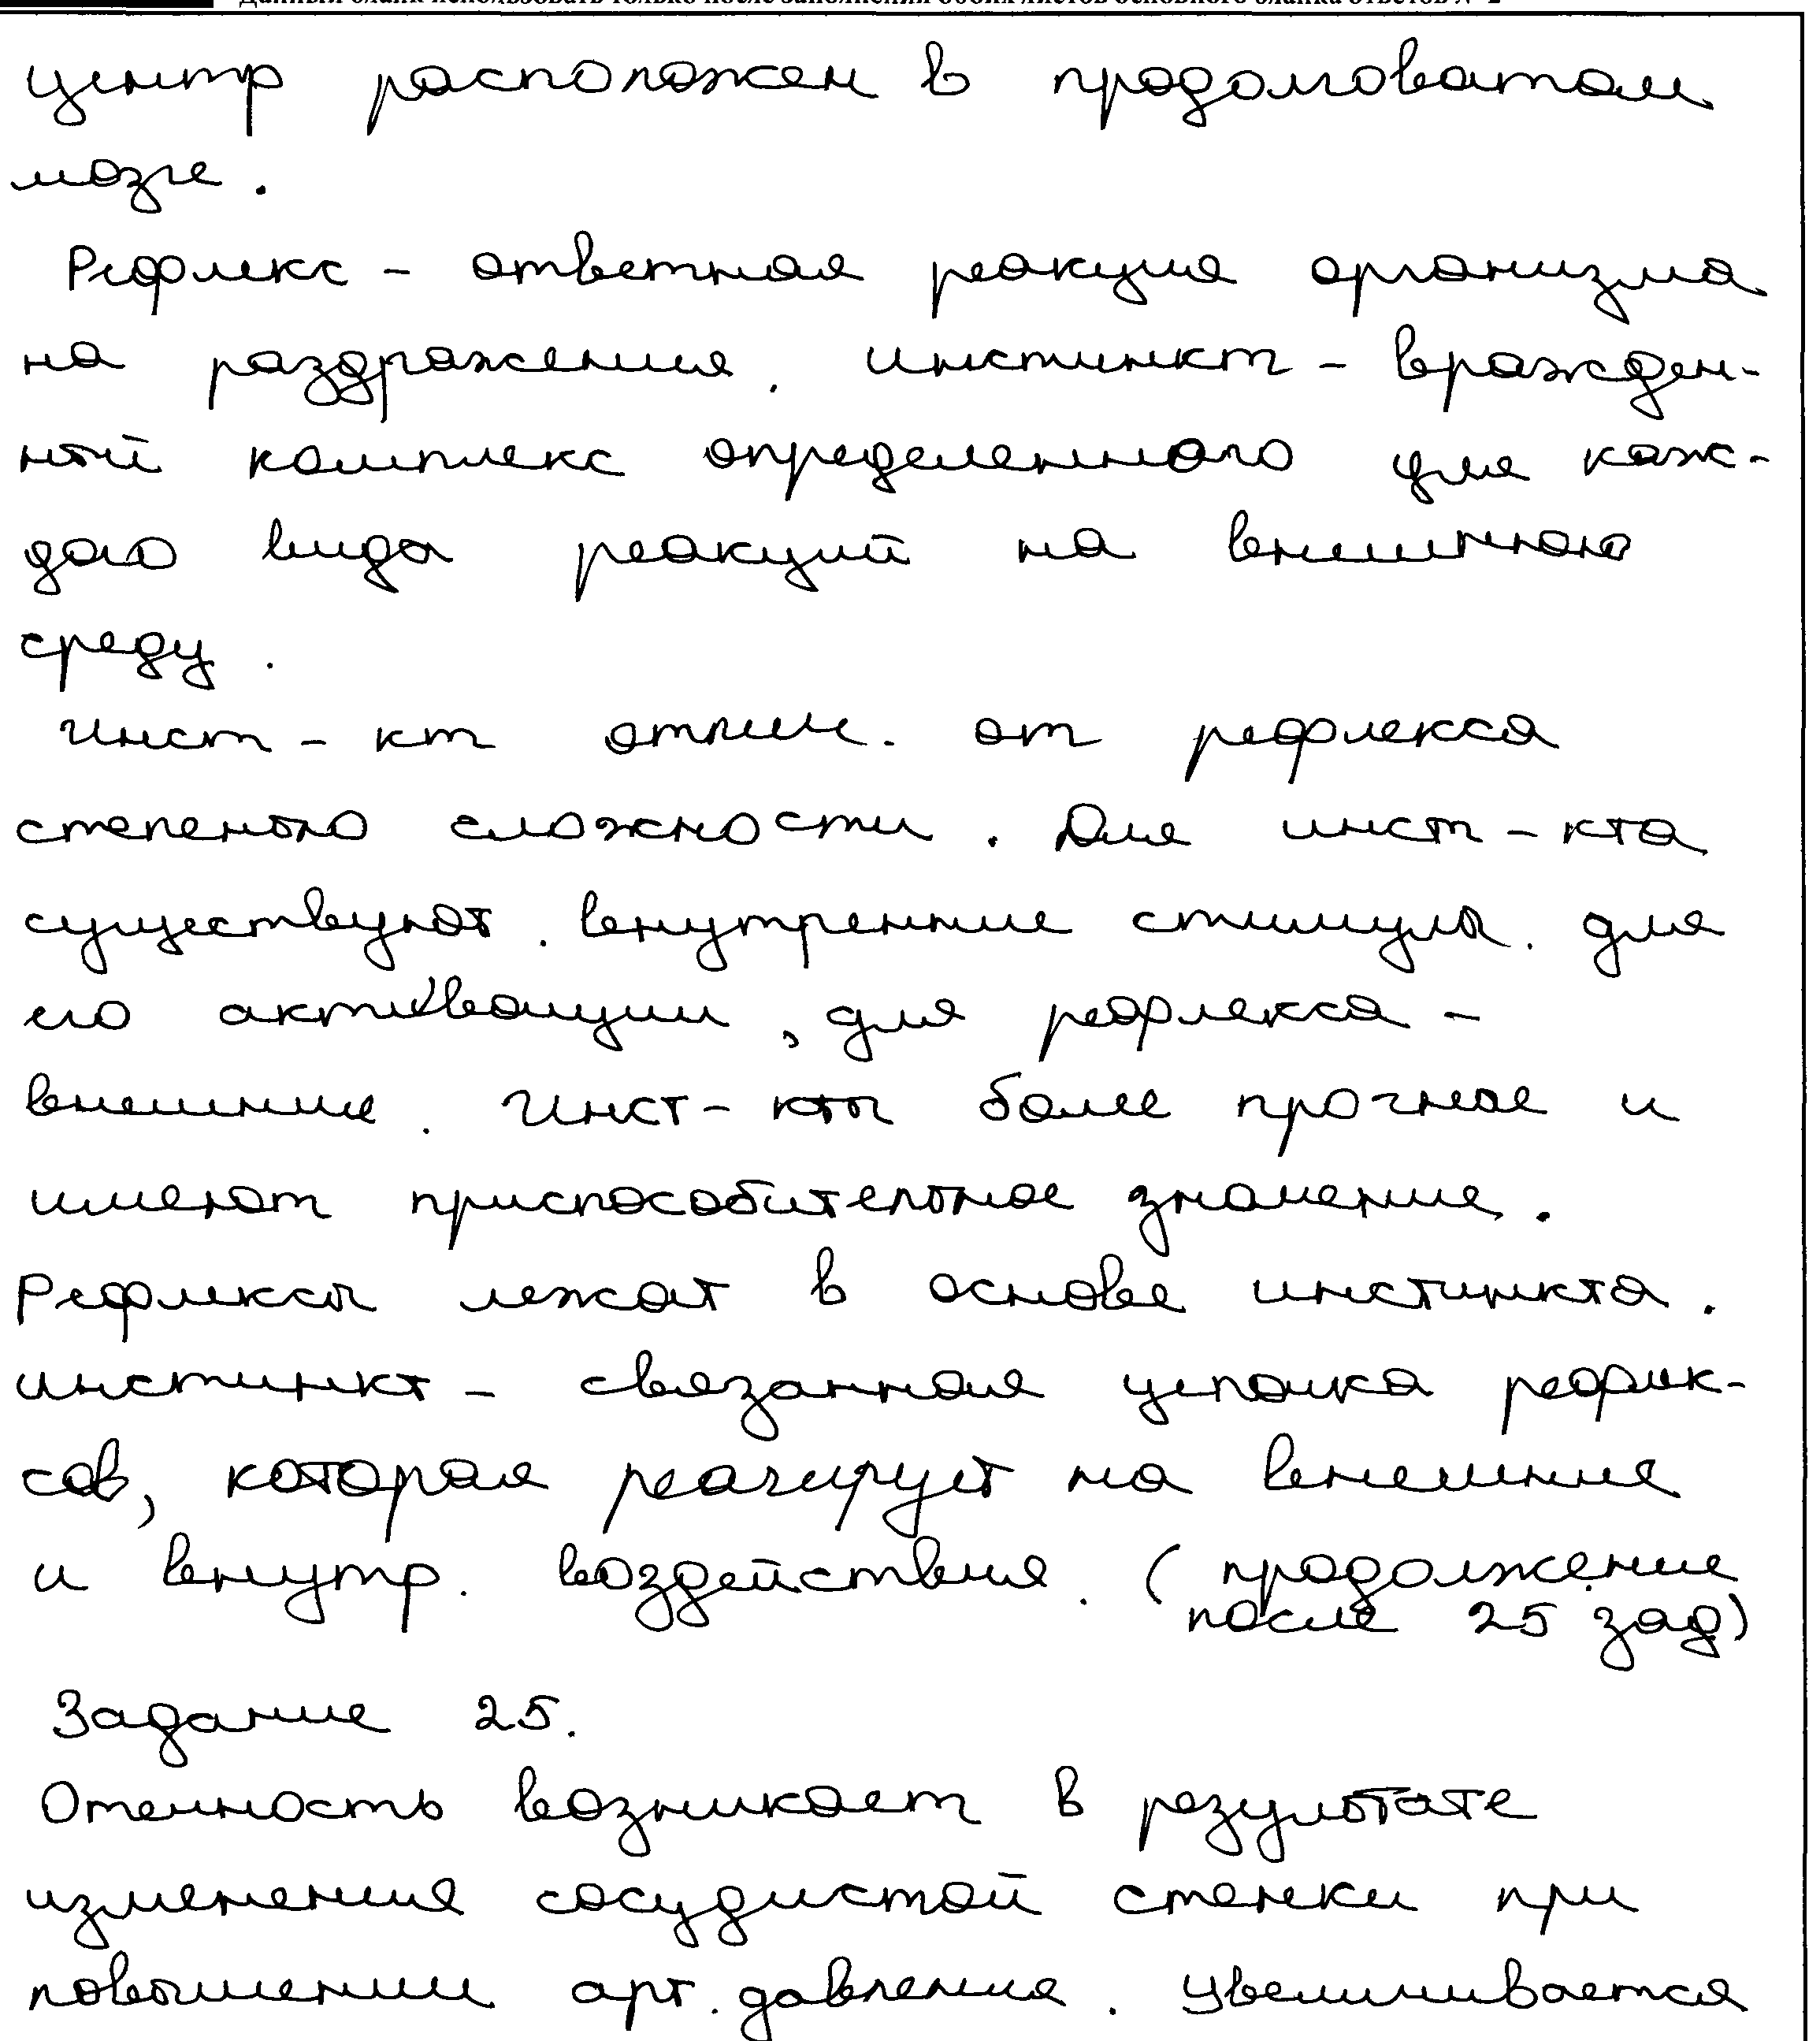 Данный бланк использовать только после заполнения обоих листов основного бланка ответов № 2
центр расположен в продолговатом
мозге.
Рефлекс - ответная реакция организма
на раздражения. инстинкт - врожден-
ный комплекс определенного для каж-
дого вида реакций на внешнюю
среду.
Инст-кт отлич. от рефлекса
степенью сложности. Для инст-кта
существуют внутренние стимулы для
его активации, для рефлекса -
внешние. Инст-кты более прочное и
имеют приспособительное значение.
Рефлексы лежат в основе инстинкта.
инстинкт - связанная цепочка рефлек-
сов, которая реагирует на внешние
и внутр. воздействия. (продолжение
после 25 зад)
Задание 25.
Отечность возникает в результате
изменения сосудистой стенки при
повышении арт. давления. Увеличивается